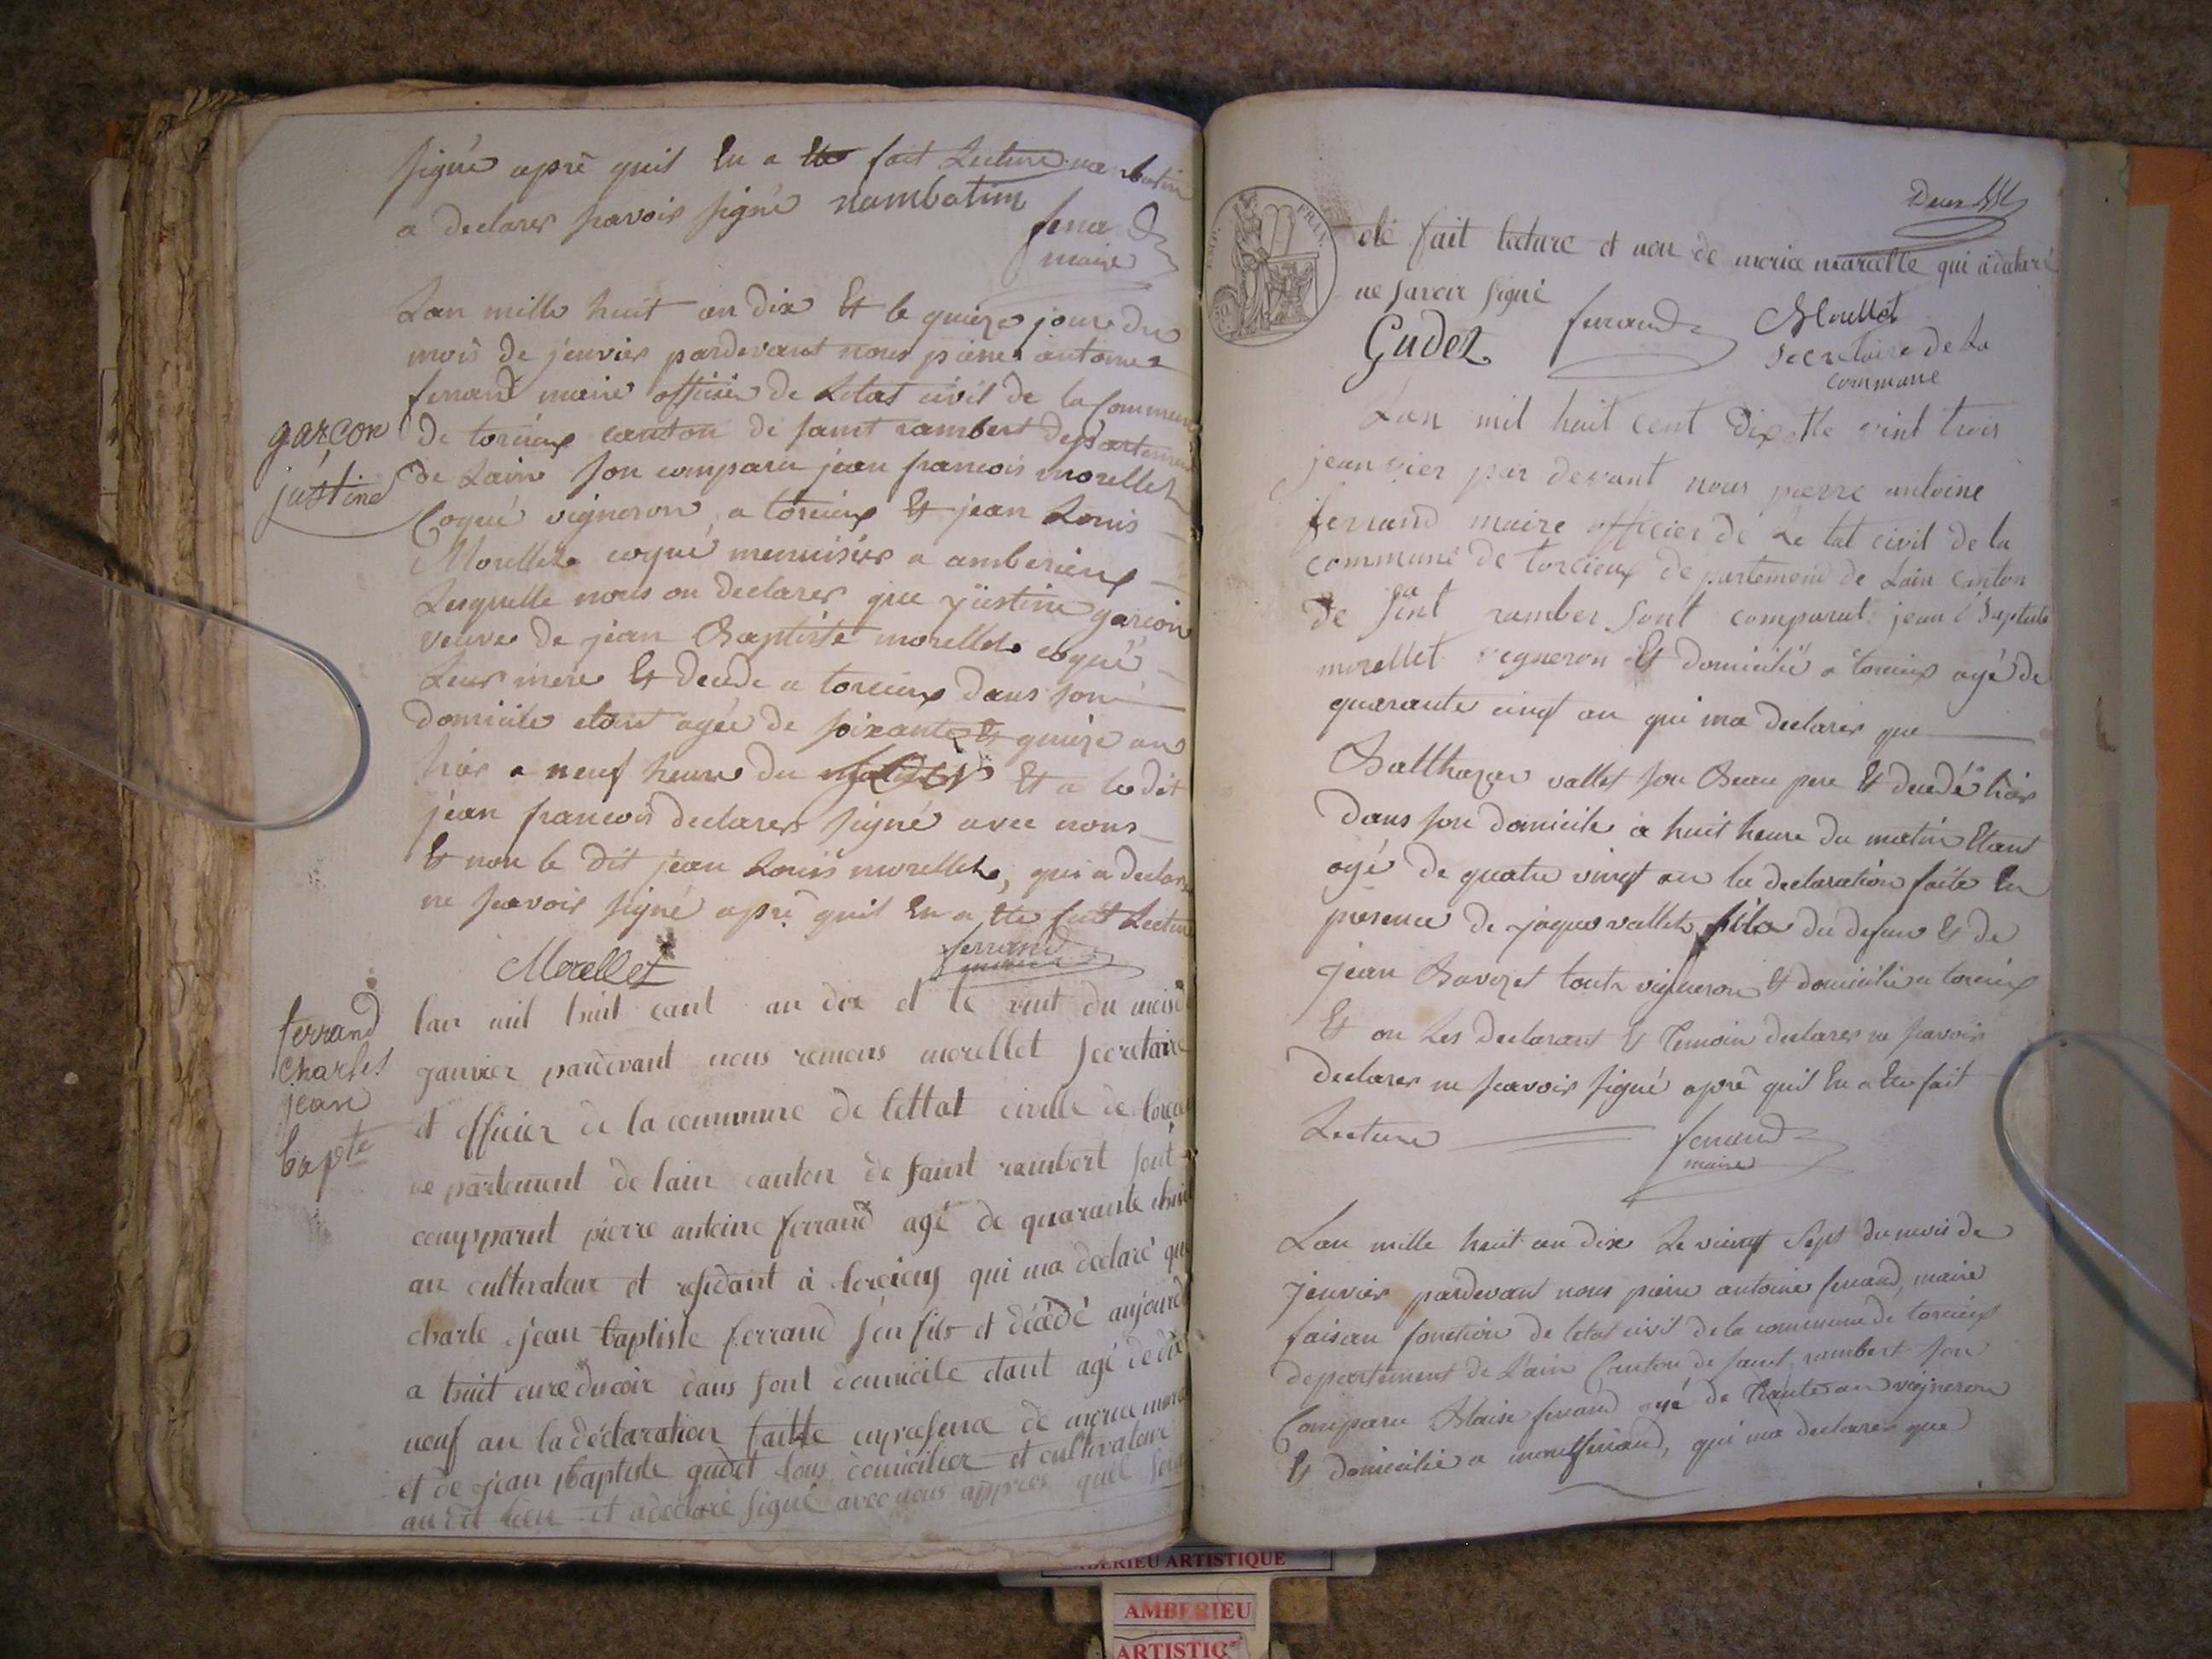 signé aprè quil En a Ete fait Lecture
a declarer savoir signé nambotin
ferrand
maire
Lan mille huit an dix Et le quinze jour du
mois de jenvier pardevant nous pierre antoine
ferrand maire officier de Letat civil de la Commune
garçon
justine
de torcieux canton de saint rambert departement
de Lain son comparu jean francois morellet
Coqué vigneron a torcieux Et jean Louis
Morellet coqué menuisier a amberieux
Lesquelle nous on declarer que justine garcon
veuve de jean Baptiste morellet coqué
Leur mere Et decede a torcieux dans son
domicile etant agée de soixante Et quinze an
hier a neuf heure du Et a le dit
jean francois declarer signé avec nous
Et non le dit jean Louis morellet, qui a declare
ne savoir signé aprè quil En a Ete fait Lecture
Morellet
ferrand
maire
ferrand
charles
jean
bapte
lan mil huit cant an dix et le vint du mois de
janvier pardevant nous remons morellet secretaire
et officier de la commune de lettat civille de
departement de lain canton de saint rambert sont
compparut pierre antoine ferrand agé de quarante
an cultivateur et residant à torcieus qui ma declaré que
charle jean baptiste ferrand son fils et décédé
a huit eure du soir dans sont domicile etant agé de dix
neuf an la déclaration faitte enpresence de
et de jean baptiste gudet tous domicilier et cultivateur
au dit lieu et a declaré signé avec nous appres quil
été fait lecture et non de morice marcelle qui a declaré
ne savoir signé
Gudet
ferrand
Morellet
secretaire de La
commune
Lan mil huit cent dix et le vint trois
jeanvier par devant nous pierre antoine
ferrand maire officier de Le tat civil de la
commune de torcieux departement de Lain canton
de saint ramber sont comparut jean Baptiste
morellet vegneron Et domicilié a torcieux agé de
quarante cinq an qui ma declarer que
Balthazar vallet son Beau pere Et decedé hier
dans son domicile a huit heure du matin Etant
agé de quatre vingt an la declaration faite En
presence de jaque vallet fils du defun Et de
jean Bavozet tout vigneron Et domicilié a torcieux
Et on Les declarant Et temoin declarer ne savoir
declarer ne savoir signé aprè quil En a Ete fait
Lecture
ferrand
maire
Lan mille huit an dix Le vingt sept du mois de
jenvier pardevant nous pierre antoine ferrand, maire
faisan fonction de letat civil de la commune de torcieux
departement de Lain Canton de saint rambert son
Comparu Blaise ferrand agé de trante an vigneron
Et domicilié a montferrand, qui ma declarer que
AMBERIEU ARTISTIQUE
AMBERIEU
ARTISTIQ